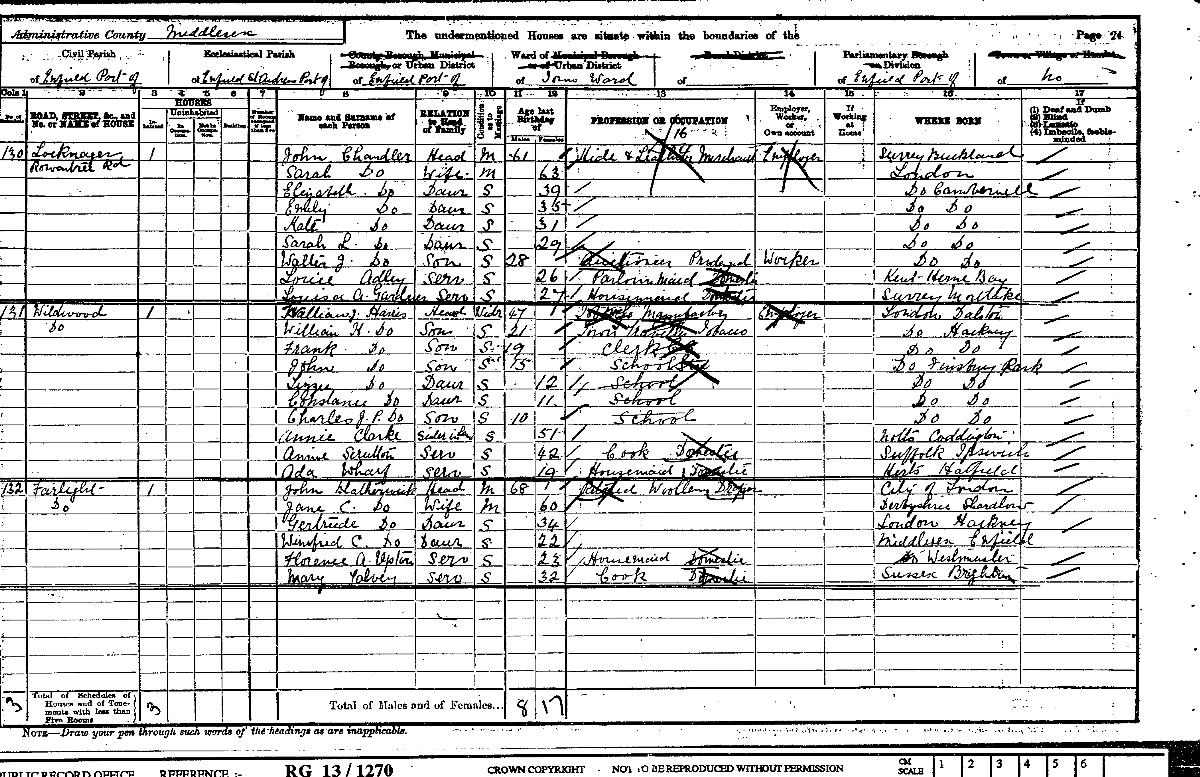 Administrative County Middlesex The undermentioned Houses are situate within the boundaries of the Page 24
Civil Parish Ecclesiastical Parish County Borough, Municipal Borough, or Urban District Ward of Municipal Borough or of Urban District Rural District Parliamentary Borough or Division Town or Village or Hamlet
of Enfield Part of of Enfield St Andrew Part of of Enfield Part of of Town Ward of of Enfield Part of of No
Cols 1 2 3 4 5 6 7 8 9 10 11 12 13 14 15 16 17
No. of ROAD, STREET, &c., and No. or NAME of HOUSE HOUSES Inhabited Uninhabited In Occupation. Not in Occupation. Building Name and Surname of each Person RELATION to Head of Family Condition as to Marriage Age last Birthday of Males Females PROFESSION OR OCCUPATION Employer, Worker, or Own account If Working at Home WHERE BORN (1) Deaf and Dumb (2) Blind (3) Lunatic (4) Imbecile, feeble-minded
16
130 1 John Chandler Head M 61 Hide & Merchant Employer Surrey Buckland
Rowantree Rd Sarah Do Wife M 63 London
Elizabeth Do Daur S 39 Do Camberwell
Emily Do Daur S 35 Do Do
Kate Do Daur S 31 Do Do
Sarah L. Do Daur S 29 Do Do
Walter J. Do Son S 28 Auctioneer Worker Do Do
Louie Adley Serv S 26 Parlourmaid Domestic Kent Herne Bay
Louisa A. Gardner Serv S 27 Housemaid Domestic Surrey Mortlake
131 Wildwood 1 William J. Harris Head Widr 47 Tobacco Manufacturer Employer London Dalston
Do William H. Do Son S 21 Town Tobacco Do Hackney
Frank Do Son S 19 Clerk Do Do
John Do Son S 15 School Do Finsbury Park
Lizzie Do Daur S 12 School Do Do
Constance Do Daur S 11 School Do Do
Charles J. P. Do Son S 10 School Do Do
Annie Clarke Sister in law S 51 Notts Coddington
Annie Scrutton Serv S 42 Cook Domestic Suffolk Ipswich
Ada Wharf Serv S 19 Housemaid Domestic Herts Hatfield
132 Farlight 1 John Head M 68 Retired Woollen Draper City of London
Do Jane C. Do Wife M 60 Derbyshire Shardlow
Gertrude Do Daur S 34 London Hackney
Winifred C. Do Daur S 22 Middlesex Enfield
Florence A. Upton Serv S 23 Housemaid Domestic Do Westminster
Mary Serv S 32 Cook Domestic Sussex Brighton
3 Total of Schedules of Houses and of Tenements with less than Five Rooms 3 Total of Males and of Females... 8 17
NOTE—Draw your pen through such words of the headings as are inapplicable.
PUBLIC RECORD OFFICE REFERENCE :- RG 13 / 1270 CROWN COPYRIGHT - NOT TO BE REPRODUCED WITHOUT PERMISSION CM SCALE 1 2 3 4 5 6